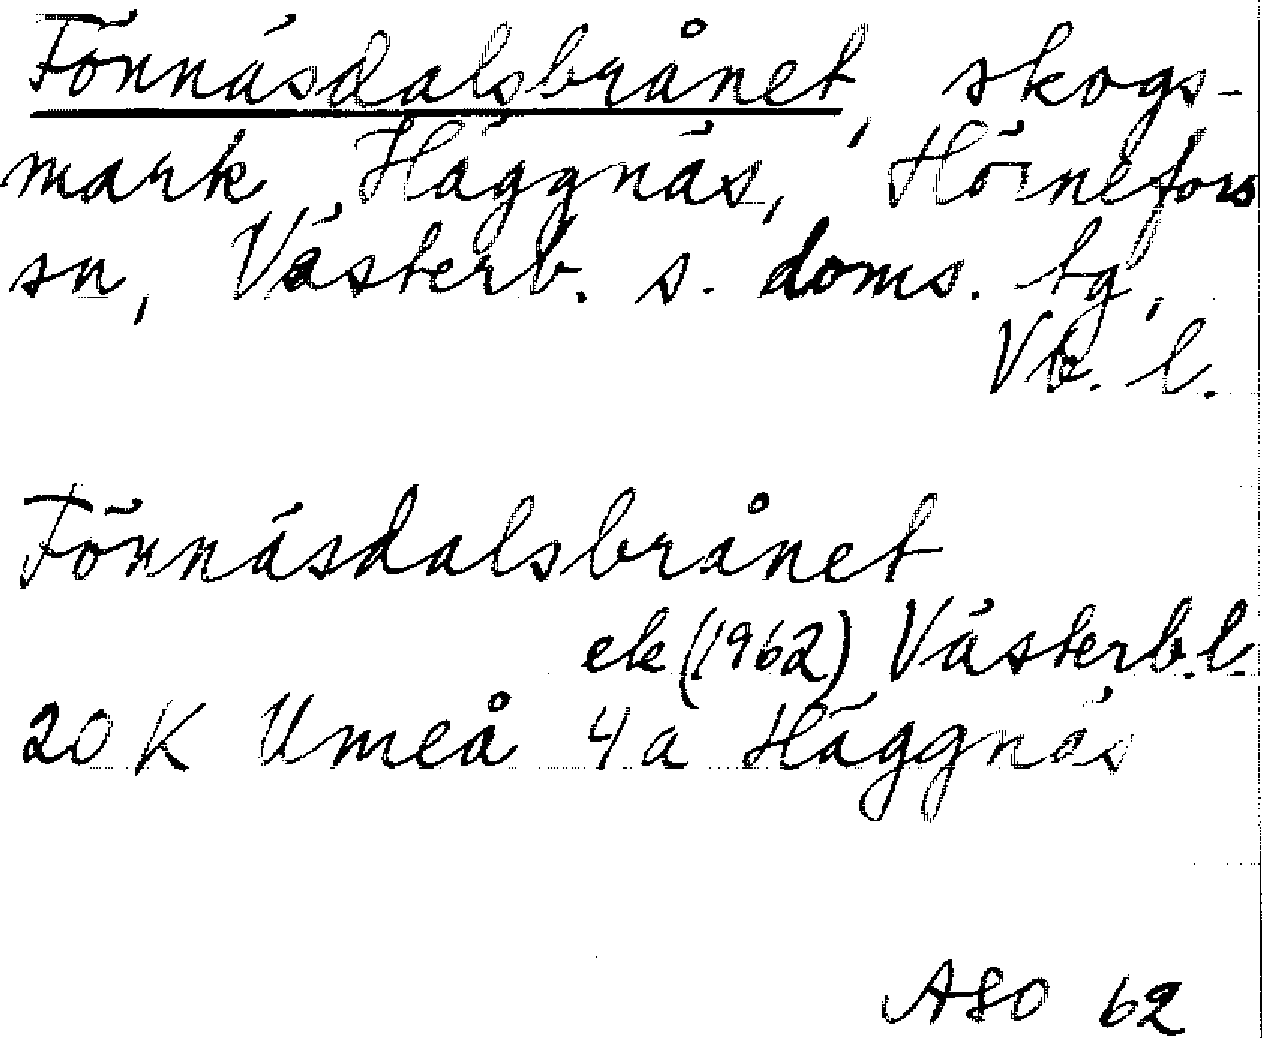 Fönnäsdalsbrånet, skogs-
mark, Häggnäs, Hörnefors
sn, Västerb. s. doms. tg,
Vb. l.
Fönnäsdalsbrånet
ek (1962) Västerb.l.
20 K Umeå 4a Häggnäs
ASO 62